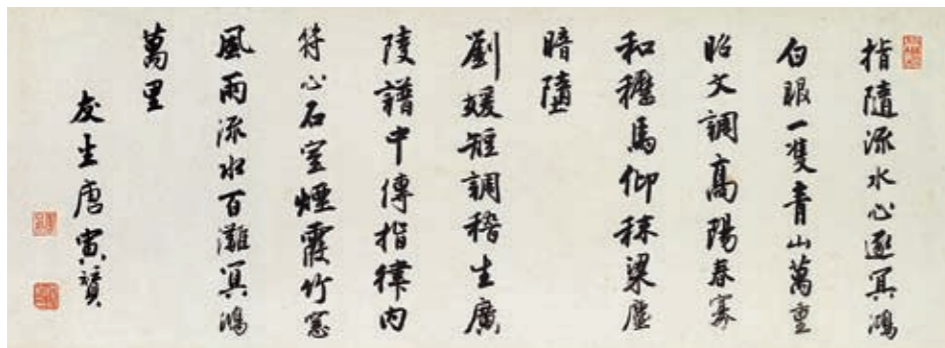 指隨流水心逐冥鴻
白眼一雙青山萬重
昭文調高陽春寡
和櫪馬仰秣梁塵
暗墮
劉媛短調嵇生廣
陵譜中傳指律內
符心石室煙霞竹窓
風雨流水百灘冥鴻
萬里
友生唐寅贊